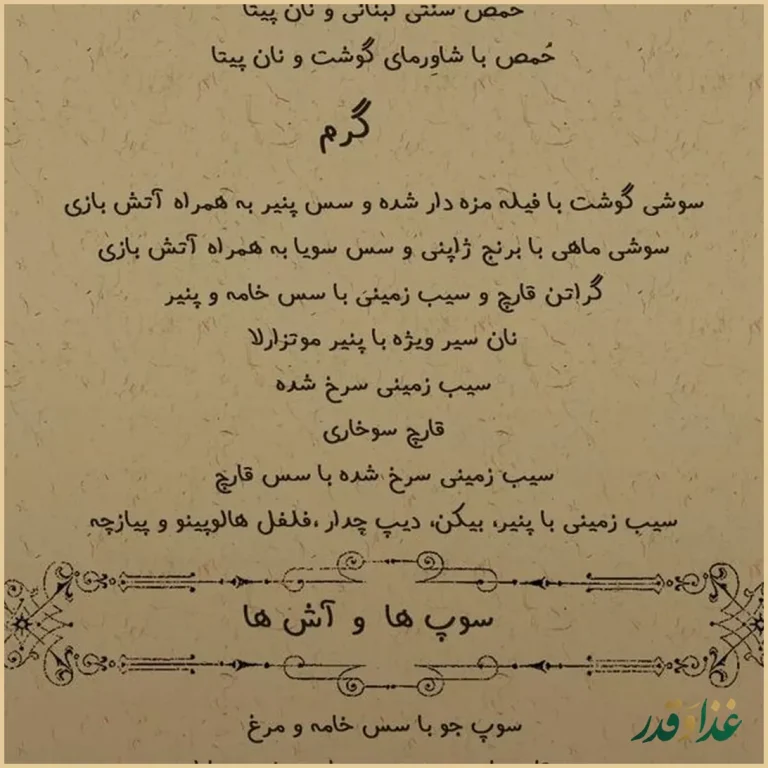 حمص سنتی لبنانی و نان پیتا
حُمص با شاورمای گوشت و نان پیتا
گرم
سوشی گوشت با فیله مزه دار شده و سس پنیر به همراه آتش بازی
سوشی ماهی با برنج ژاپنی و سس سویا به همراه آتش بازی
گراتن قارچ و سیب زمینی با سس خامه و پنیر
نان سیر ویژه با پنیر موتزارلا
سیب زمینی سرخ شده
قارچ سوخاری
سیب زمینی سرخ شده با سس قارچ
سیب زمینی با پنیر، بیکن، دیپ چدار ،فلفل هالوپینو و پیازچه
سوپ ها و آش ها
سوپ جو با سس خامه و مرغ
غذا قدر